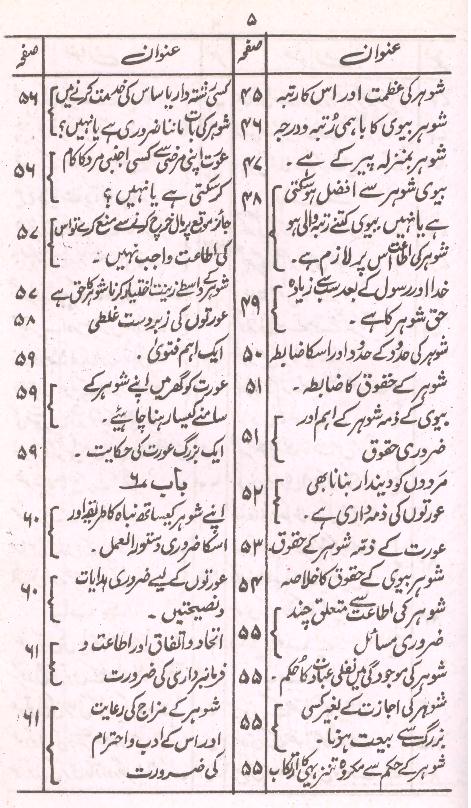 ۵
عنوان صفحہ
شوہر کی عظمت اور اس کا رتبہ ۴۵
شوہر بیوی کا باہمی رُتبہ و درجہ ۴۶
شوہر بمنزلہ پیر کے ہے ۔ ۴۷
بیوی شوہر سے افضل ہو سکتی
ہے یا نہیں بیوی کتنے رتبہ والی ہو ۴۸
شوہر کی اطاعت اس پر لازم ہے ۔
خدا اور رسول کے بعد سب سے زیادہ
حق شوہر کا ہے ۔ ۴۹
شوہر کی حدود کے حدود اور اسکا ضابطہ ۵۰
شوہر کے حقوق کا ضابطہ ۔ ۵۱
بیوی کے ذمہ شوہر کے اہم اور
ضروری حقوق ۵۱
مردوں کو دیندار بنانا بھی
عورتوں کی ذمہ داری ہے ۔ ۵۲
عورت کے ذمہ شوہر کے حقوق ۔ ۵۳
شوہر بیوی کے حقوق کا خلاصہ ۵۴
شوہر کی اطاعت سے متعلق چند
ضروری مسائل ۵۵
شوہر کی موجودگی میں نفلی عبادت کا حکم ۔ ۵۵
شوہر کی اجازت کے بغیر کسی
بزرگ سے بیعت ہونا ۔ ۵۵
شوہر کے حکم سے مکروہ تنزیہی کا ارتکاب ۵۵
عنوان صفحہ
کسی رشتہ دار یا ساس کی خدمت کرنے میں
شوہر کی بات ماننا ضروری ہے یا نہیں؟ ۵۶
عورت اپنی مرضی سے کسی اجنبی مرد کا کام
کر سکتی ہے یا نہیں ؟ ۵۶
جائز موقع پر مال خرچ کرنے سے منع کرے تو اس
کی اطاعت واجب نہیں ۔ ۵۷
شوہر کے واسطے زینت اختیار کرنا شوہر کا حق ہے ۵۷
عورتوں کی زبردست غلطی ۵۸
ایک اہم فتویٰ ۔ ۵۹
عورت کو گھر میں اپنے شوہر کے
سامنے کیسا رہنا چاہیئے ۔ ۵۹
ایک بزرگ عورت کی حکایت ۔ ۵۹
باب ۶
اپنے شوہر کیساتھ نباہ کا طریقہ اور
اسکا ضروری دستور العمل ۔ ۶۰
عورتوں کے لیے ضروری ہدایات
و نصیحتیں ۔ ۶۰
اتحاد و اتفاق اور اطاعت و
فرمانبرداری کی ضرورت ۶۱
شوہر کے مزاج کی رعایت
اور اس کے ادب و احترام ۶۱
کی ضرورت